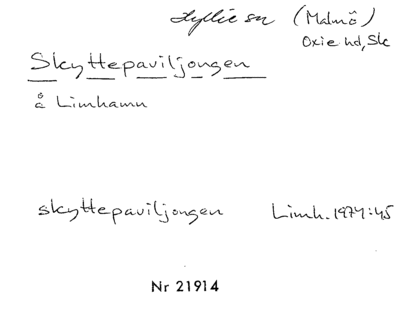 Hyllie sn (Malmö)
Oxie hd, Sk
Skyttepaviljongen
å Limhamn
skyttepaviljongen Limh. 1974:45
Nr 21914